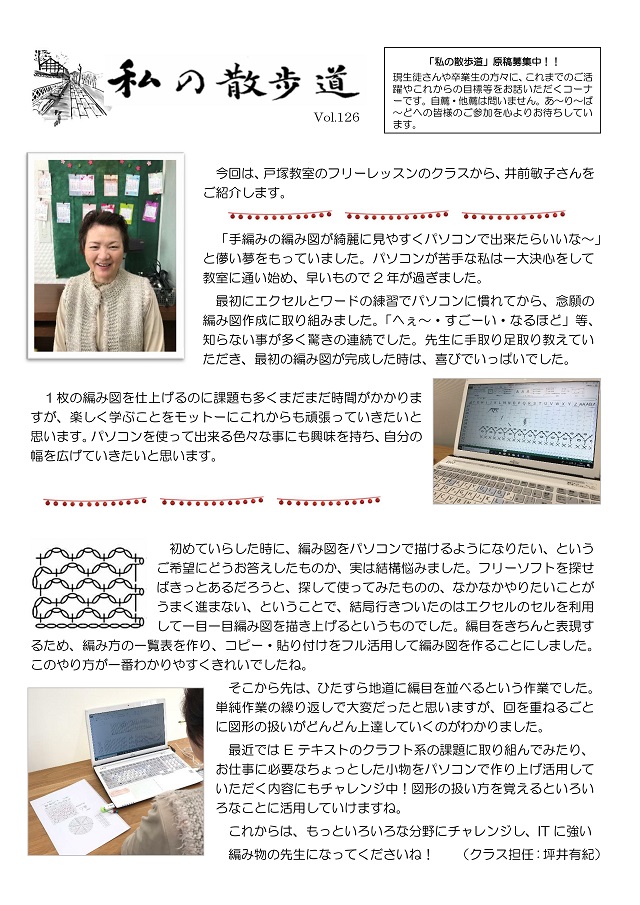 私の散歩道
Vol.126
「私の散歩道」原稿募集中！！
現生徒さんや卒業生の方々に、これまでのご活
躍やこれからの目標等をお話いただくコーナ
ーです。自薦・他薦は問いません。あ～り～ば
～どへの皆様のご参加を心よりお待ちしてい
ます。
今回は、戸塚教室のフリーレッスンのクラスから、井前敏子さんを
ご紹介します。
「手編みの編み図が綺麗に見やすくパソコンで出来たらいいな～」
と儚い夢をもっていました。パソコンが苦手な私は一大決心をして
教室に通い始め、早いもので２年が過ぎました。
最初にエクセルとワードの練習でパソコンに慣れてから、念願の
編み図作成に取り組みました。「へぇ～・すごーい・なるほど」等、
知らない事が多く驚きの連続でした。先生に手取り足取り教えてい
ただき、最初の編み図が完成した時は、喜びでいっぱいでした。
１枚の編み図を仕上げるのに課題も多くまだまだ時間がかかりま
すが、楽しく学ぶことをモットーにこれからも頑張っていきたいと
思います。パソコンを使って出来る色々な事にも興味を持ち、自分の
幅を広げていきたいと思います。
初めていらした時に、編み図をパソコンで描けるようになりたい、という
ご希望にどうお答えしたものか、実は結構悩みました。フリーソフトを探せ
ばきっとあるだろうと、探して使ってみたものの、なかなかやりたいことが
うまく進まない、ということで、結局行きついたのはエクセルのセルを利用
して一目一目編み図を描き上げるというものでした。編目をきちんと表現す
るため、編み方の一覧表を作り、コピー・貼り付けをフル活用して編み図を作ることにしました。
このやり方が一番わかりやすくきれいでしたね。
そこから先は、ひたすら地道に編目を並べるという作業でした。
単純作業の繰り返しで大変だったと思いますが、回を重ねるごと
に図形の扱いがどんどん上達していくのがわかりました。
最近では E テキストのクラフト系の課題に取り組んでみたり、
お仕事に必要なちょっとした小物をパソコンで作り上げ活用して
いただく内容にもチャレンジ中！図形の扱い方を覚えるといろい
ろなことに活用していけますね。
これからは、もっといろいろな分野にチャレンジし、IT に強い
編み物の先生になってくださいね！　（クラス担任：坪井有紀）